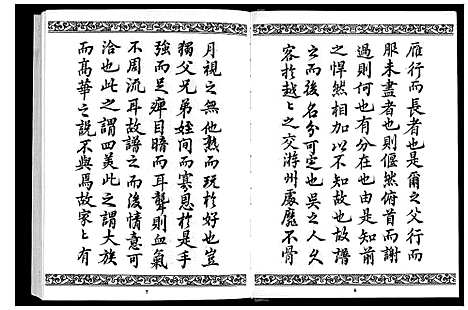 雁行而長者也是爾之父行而
服未盡者也則偃然俯首而謝
過則何也有分在也由是知前
之悍然相加以不知故也故譜
之而後名分可定也吳之人欠
客於越之交游州處靡不骨
月視之無他熟而玩於好也豈
獨父兄弟姪間而寡恩於是手
強而足痺目暗而耳聾則血氣
不周流耳故譜之而後情意可
洽也此之謂四美此之謂大族
而高華之說不與焉故家之有